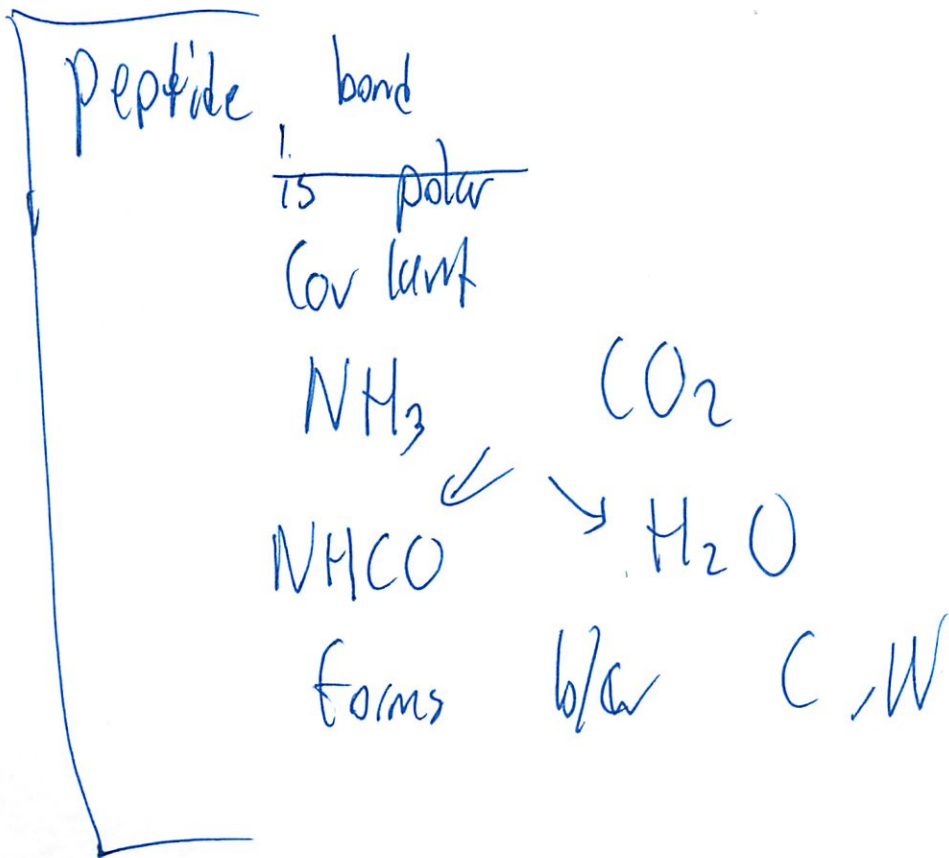 peptide bond
is polar
Cov lant
NH₃ CO₂
↙ ↘
NHCO H₂O
forms b/w C, N